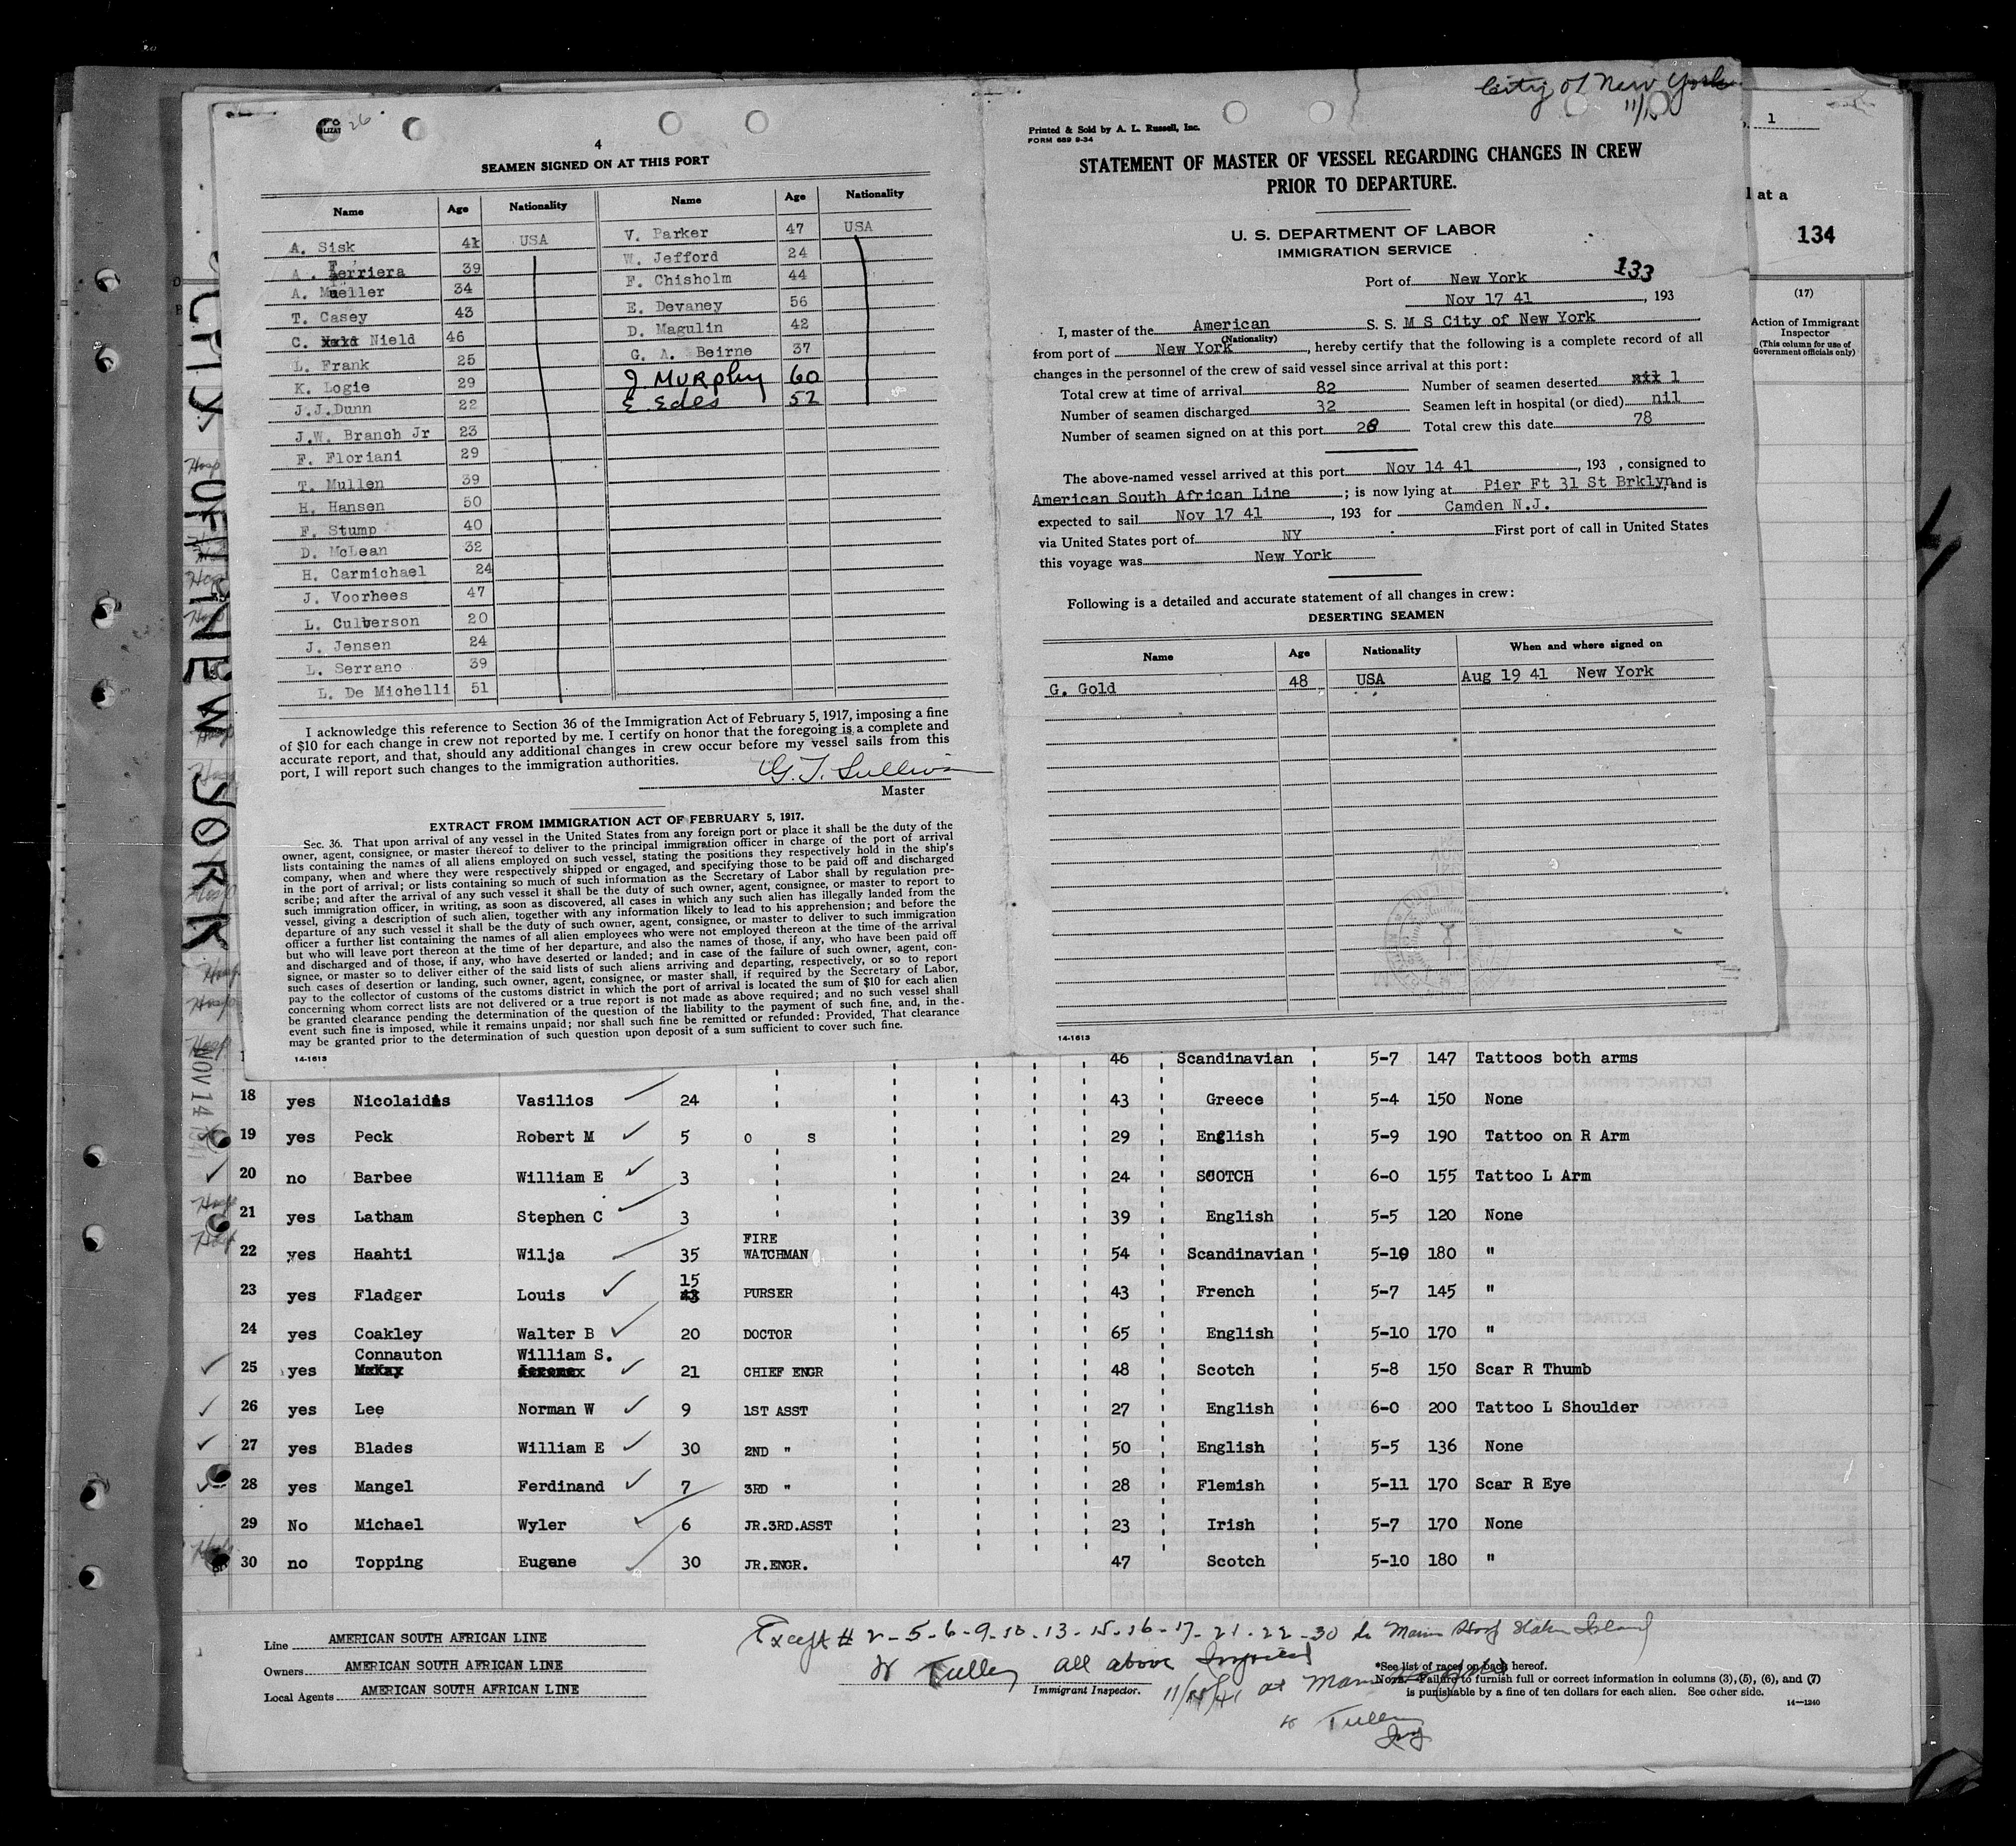 City of New York
4
SEAMEN SIGNED ON AT THIS PORT
Name Age Nationality Name Age Nationality
A. Sisk 41 USA V. Parker 47 USA
A. Ferriera 39 W. Jefford 24
A. Mueller 34 F. Chisholm 44
T. Casey 43 E. Devaney 56
C. Nield 46 D. Magulin 42
L. Frank 25 G. A. Beirne 37
K. Logie 29 J MURPHY 60
J.J.Dunn 22 E Edes 52
J.W. Branch Jr 23
F. Floriani 29
T. Mullen 39
H. Hansen 50
F. Stump 40
D. McLean 32
H. Carmichael 24
J. Voorhees 47
L. Culverson 20
J. Jensen 24
L. Serrano 39
L. De Michelli 51
I acknowledge this reference to Section 36 of the Immigration Act of February 5, 1917, imposing a fine
of $10 for each change in crew not reported by me. I certify on honor that the foregoing is a complete and
accurate report, and that, should any additional changes in crew occur before my vessel sails from this
port, I will report such changes to the immigration authorities.
G. T. Sullivan
Master
EXTRACT FROM IMMIGRATION ACT OF FEBRUARY 5, 1917.
Sec. 36. That upon arrival of any vessel in the United States from any foreign port or place it shall be the duty of the
owner, agent, consignee, or master thereof to deliver to the principal immigration officer in charge of the port of arrival
lists containing the names of all aliens employed on such vessel, stating the positions they respectively hold in the ship's
company, when and where they were respectively shipped or engaged, and specifying those to be paid off and discharged
in the port of arrival; or lists containing so much of such information as the Secretary of Labor shall by regulation pre-
scribe; and after the arrival of any such vessel it shall be the duty of such owner, agent, consignee, or master to report to
such immigration officer, in writing, as soon as discovered, all cases in which any such alien has illegally landed from the
vessel, giving a description of such alien, together with any information likely to lead to his apprehension; and before the
departure of any such vessel it shall be the duty of such owner, agent, consignee, or master to deliver to such immigration
officer a further list containing the names of all alien employees who were not employed thereon at the time of the arrival
but who will leave port thereon at the time of her departure, and also the names of those, if any, who have been paid off
and discharged and of those, if any, who have deserted or landed; and in case of the failure of such owner, agent, con-
signee, or master so to deliver either of the said lists of such aliens arriving and departing, respectively, or so to report
such cases of desertion or landing, such owner, agent, consignee, or master shall, if required by the Secretary of Labor,
pay to the collector of customs of the customs district in which the port of arrival is located the sum of $10 for each alien
concerning whom correct lists are not delivered or a true report is not made as above required; and no such vessel shall
be granted clearance pending the determination of the question of the liability to the payment of such fine, and, in the
event such fine is imposed, while it remains unpaid; nor shall such fine be remitted or refunded: Provided, That clearance
may be granted prior to the determination of such question upon deposit of a sum sufficient to cover such fine.
14-1613
Printed & Sold by A. L. Russell, Inc.
FORM 689 9-34
STATEMENT OF MASTER OF VESSEL REGARDING CHANGES IN CREW
PRIOR TO DEPARTURE.
U. S. DEPARTMENT OF LABOR
IMMIGRATION SERVICE
133
Port of New York
Nov 17 41, 193
I, master of the American S. S. M S City of New York
(Nationality)
from port of New York, hereby certify that the following is a complete record of all
changes in the personnel of the crew of said vessel since arrival at this port:
Total crew at time of arrival 82 Number of seamen deserted 1
Number of seamen discharged 32 Seamen left in hospital (or died) nil
Number of seamen signed on at this port 28 Total crew this date 78
The above-named vessel arrived at this port Nov 14 41, 193 , consigned to
American South African Line ; is now lying at Pier Ft 31 St Brklyn, and is
expected to sail Nov 17 41, 193 for Camden N.J.
via United States port of NY First port of call in United States
this voyage was New York
Following is a detailed and accurate statement of all changes in crew:
DESERTING SEAMEN
Name Age Nationality When and where signed on
G. Gold 48 USA Aug 19 41 New York
14-1613
1
l at a
134
(17)
Action of Immigrant
Inspector
(This column for use of
Government officials only)
CITY OF NEW YORK
NOV 14 1941
46 Scandinavian 5-7 147 Tattoos both arms
18 yes Nicolaidis Vasilios 24 43 Greece 5-4 150 None
19 yes Peck Robert M 5 O S 29 English 5-9 190 Tattoo on R Arm
20 no Barbee William E 3 24 SCOTCH 6-0 155 Tattoo L Arm
21 yes Latham Stephen C 3 39 English 5-5 120 None
22 yes Haahti Wilja 35 FIRE WATCHMAN 54 Scandinavian 5-10 180 "
23 yes Fladger Louis 15 43 PURSER 43 French 5-7 145 "
24 yes Coakley Walter B 20 DOCTOR 65 English 5-10 170 "
Connauton William S.
25 yes McKay 21 CHIEF ENGR 48 Scotch 5-8 150 Scar R Thumb
26 yes Lee Norman W 9 1ST ASST 27 English 6-0 200 Tattoo L Shoulder
27 yes Blades William E 30 2ND " 50 English 5-5 136 None
28 yes Mangel Ferdinand 7 3RD " 28 Flemish 5-11 170 Scar R Eye
29 No Michael Wyler 6 JR.3RD.ASST 23 Irish 5-7 170 None
30 no Topping Eugene 30 JR.ENGR. 47 Scotch 5-10 180 "
Line AMERICAN SOUTH AFRICAN LINE
Owners AMERICAN SOUTH AFRICAN LINE
Local Agents AMERICAN SOUTH AFRICAN LINE
Except # 2-5-6-9-10-13-15-16-17-21-22-30 to Marine Hosp Staten Island
W Tulley all above Inspected
Immigrant Inspector.
at Marine
W Tulley
*See list of races on back hereof.
NOTE.—Failure to furnish full or correct information in columns (3), (5), (6), and (7)
is punishable by a fine of ten dollars for each alien. See other side.
14-1240